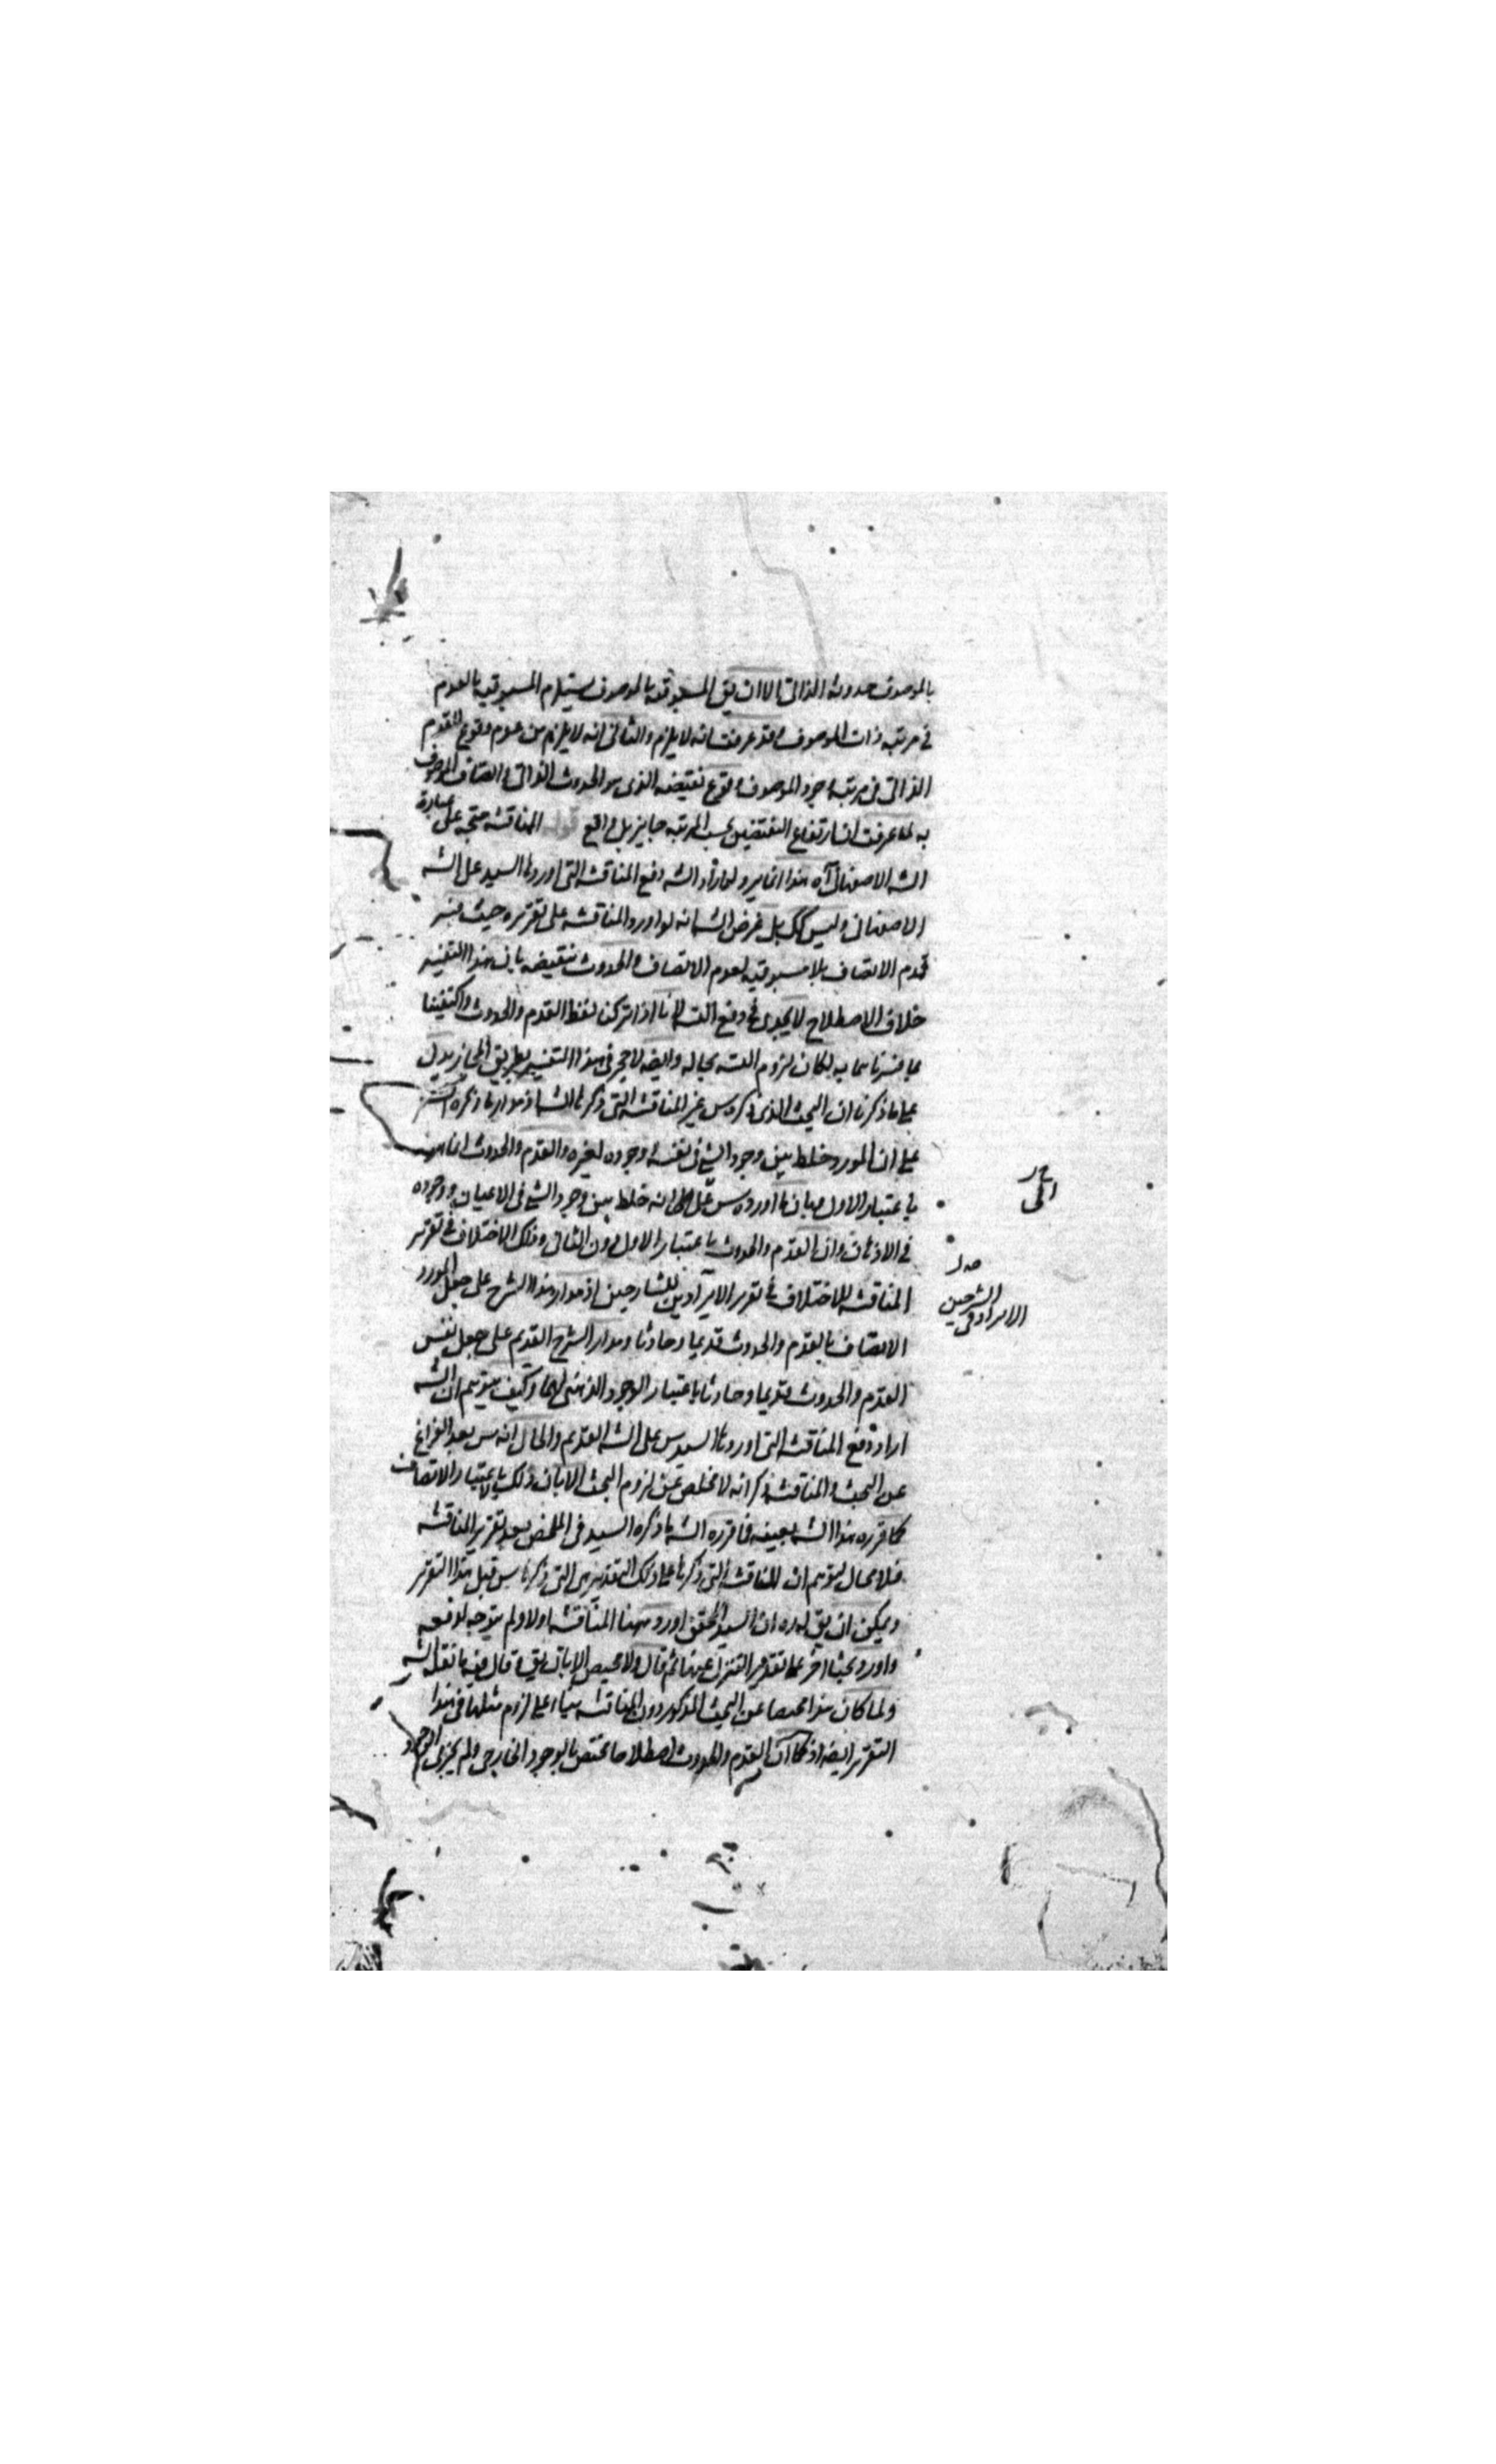 بالموصوف حدوثه الذاتى الا ان يق المسبوقية بالموصوف يستلزم المسبوقية بالعدم
فى مرتبة ذات الموصوف وقد عرفت انه لا يلزم والثانى انه لا يلزم من عدم وقوع القدم
الذاتى فى مرتبة وجود الموصوف وقوع نقيضه الذى هو الحدوث الذاتى واتصاف الموصوف
به لما عرفت ان ارتفاع النقيضين بحسب المرتبة جايز بل واقع قوله المناقشة متجه على عبارة
الشه الاصفهانى آه هذا انما يرد لو اراد الشه دفع المناقشة التى اوردها السيد على الشه
الاصفهانى وليس كك بل غرض الشه انه لو اورد المناقشة على تقريره حيث فسر
قدم الاتصاف بلا مسبوقيه لعدم الاتصاف والحدوث بنقيضه بان هذا التفسير
خلاف الاصطلاح لا يجدى فى دفع الته لانا اذا تركنا لفظ القدم والحدوث واكتفينا
بما فسرناهما به لكان لزوم الته بحاله وايضه لا حجر فى هذا التفسير بطريق المجاز يدل
على ما ذكرنا ان البحث الذى ذكره س غير المناقشة التى ذكرها الشه اذ مدار ما ذكره
على ان المورد خلط بين وجود الشئ فى نفسه ووجوده لغيره والقدم والحدوث انما هما
باعتبار الاول مبان ما اورده س على انه خلط بين وجود الشئ فى الاعيان ووجوده
فى الاذهان وان القدم والحدوث باعتبار الاول دون الثانى وذلك الاختلاف فى تقرير
المناقشة للاختلاف فى تقرير الايرادين للشارحين اذ مدار هذا الشرح على جعل المورد
الاتصاف بالقدم والحدوث قديما وحادثا ومدار الشرح القديم على جعل نفس
القدم والحدوث قديما وحادثا باعتبار الوجود الذهنى لهما وكيف يتوهم ان الشه
اراد دفع المناقشة التى اوردها السيد س على الشه القديم والحال انه س بعد الفراغ
عن البحث والمناقشة ذكر انه لا مخلص عن لزوم البحث الا بان ذلك باعتبار الاتصاف
كما قرره هذا الشه بعينه فما قرره الشه ما ذكره السيد فى الملخص بعد تقرير المناقشة
فلا مجال لتوهم ان المناقشة التى ذكرها على ذلك التقدير هى التى ذكرها س قبل هذا التقرير
ويمكن ان يق مراده ان السيد المحقق اورد ههنا المناقشة اولا ولم يتوجه لدفعه
واورد بحثا اخر على تقدير التنزل عنها ثم قال ولا محيص الا بان يق وقال فيه ما نقله الشه
ولما كان هذا محيصا عن البحث المذكور دون المناقشة بناء على لزوم مثلها فى هذا
التقرير ايضه اذ كما ان القدم والحدوث اصطلاحا مختص بالوجود الخارجى ولم يجزى
الشرحين